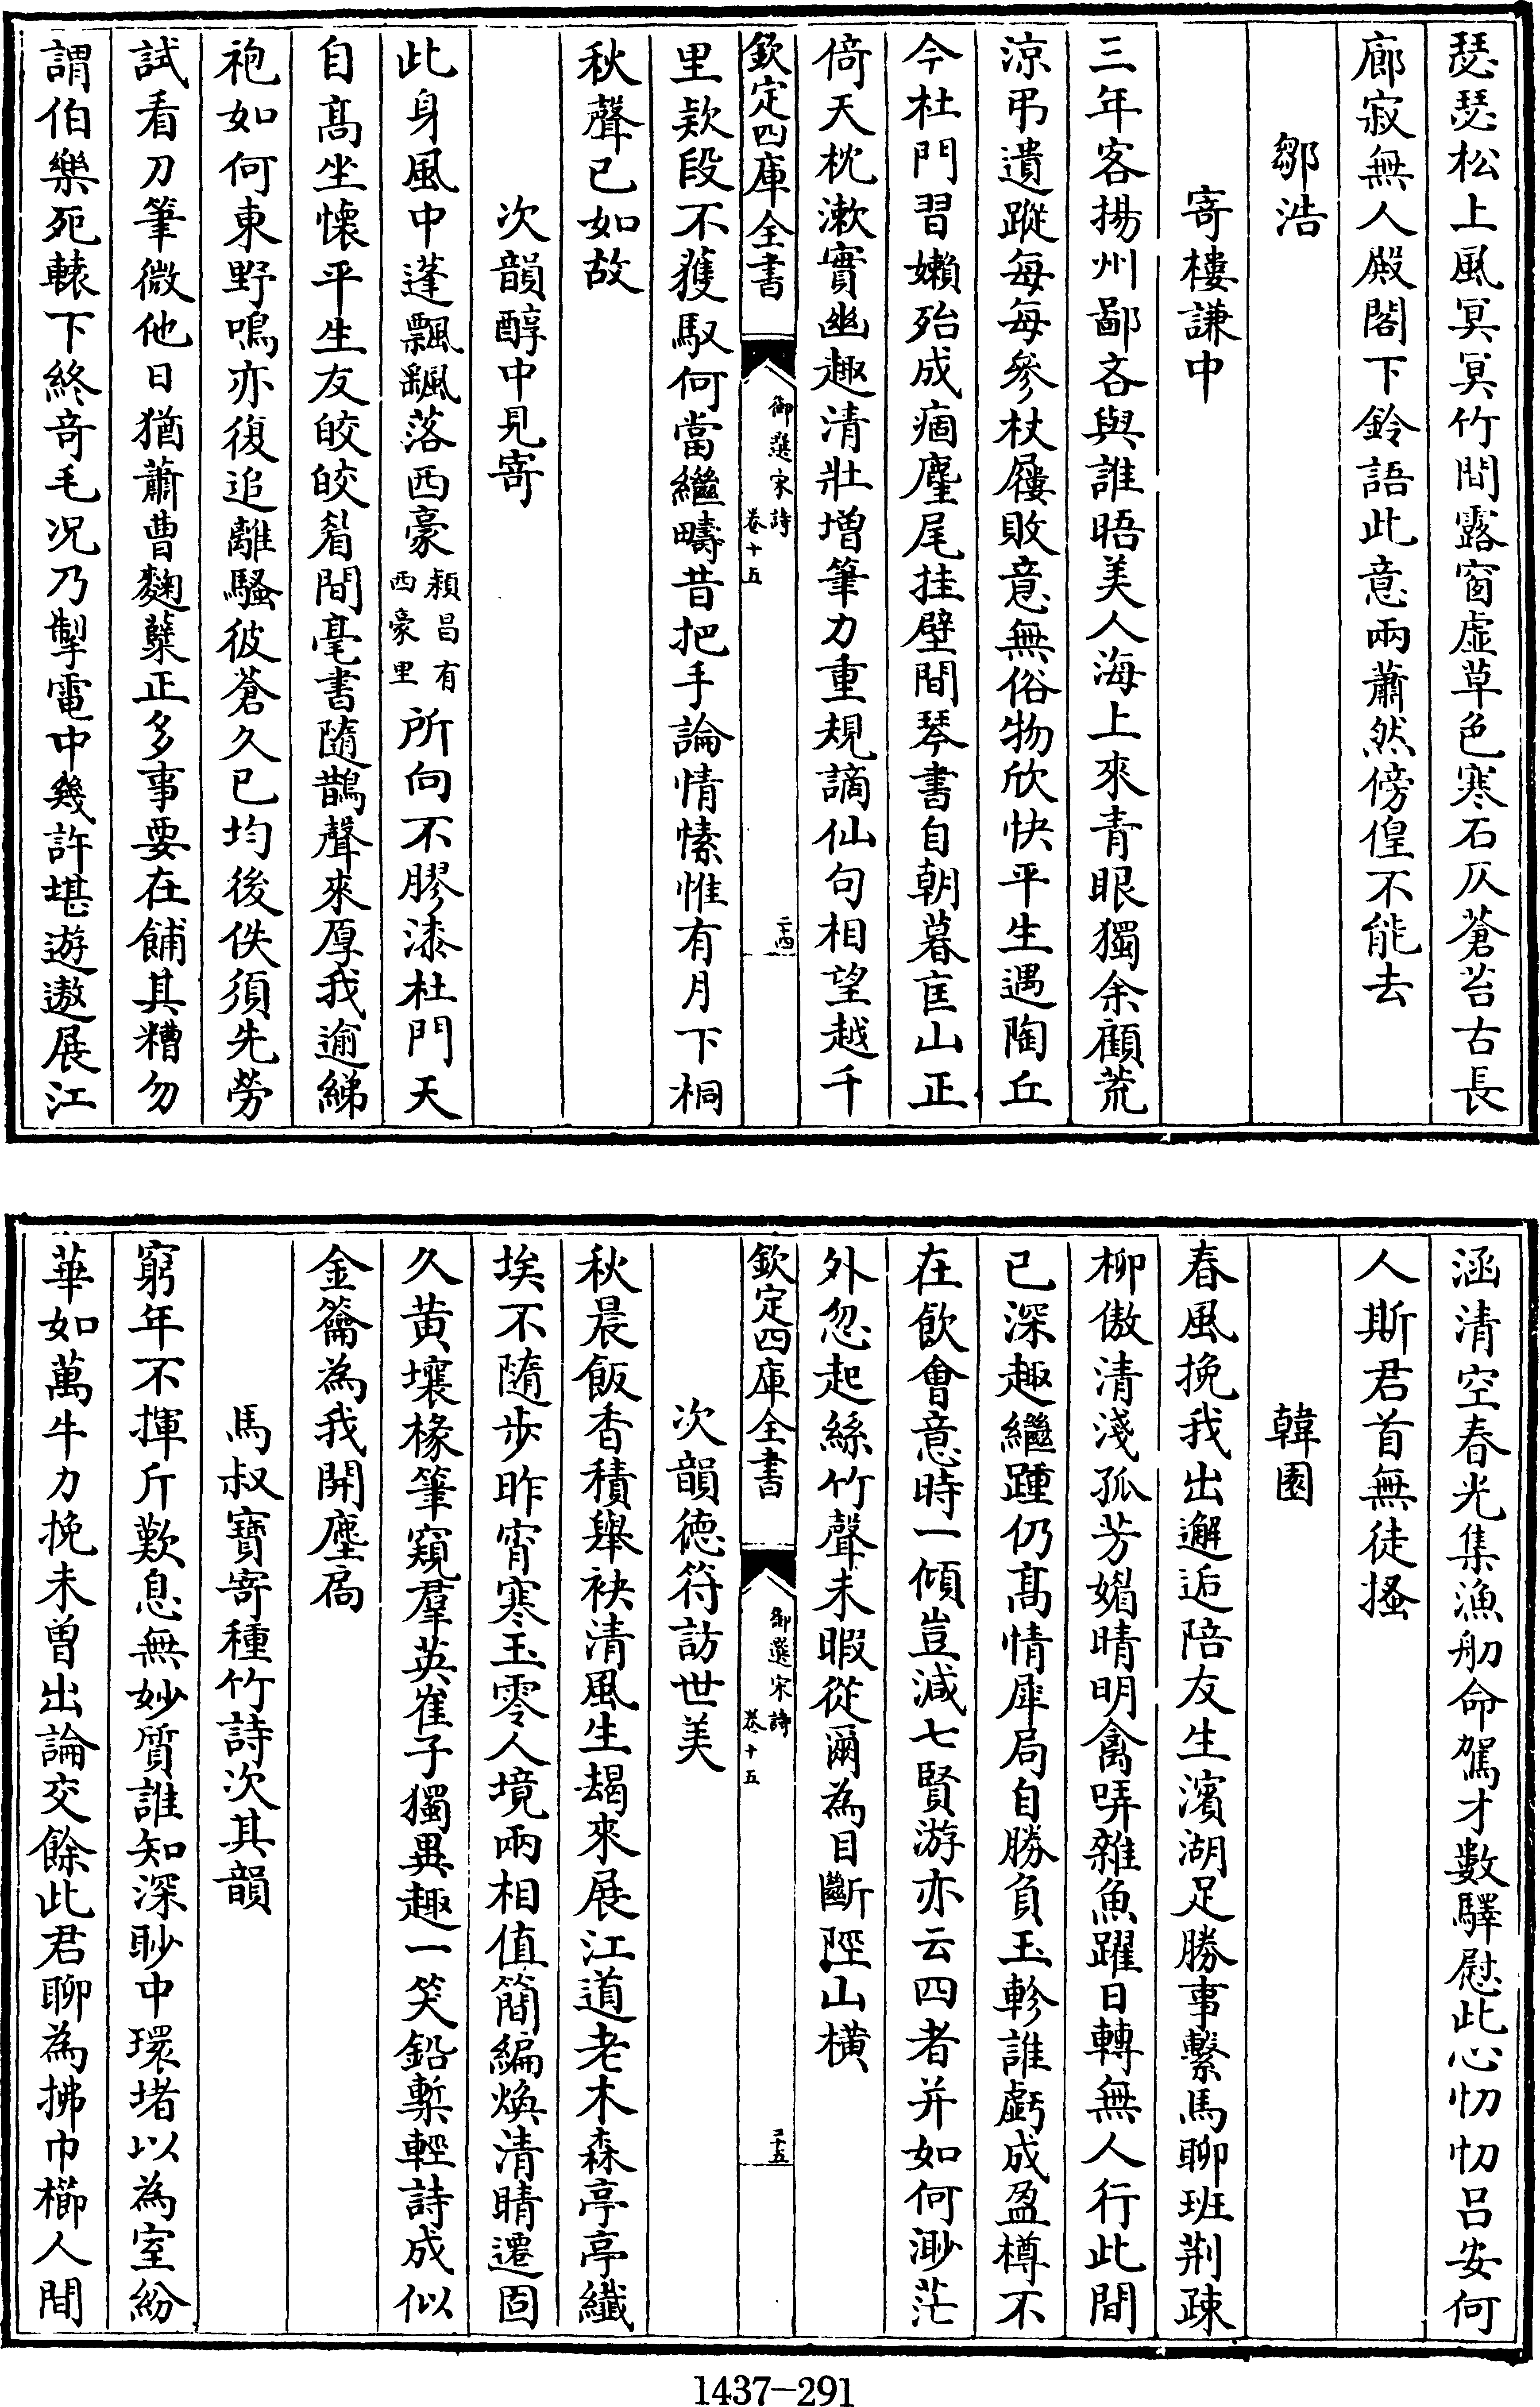 瑟瑟松上風冥冥竹間露窗虛草色寒石仄蒼苔古長
廊寂無人殿閣下鈴語此意兩蕭然傍偟不能去
鄒浩
寄樓謙中
三年客揚州鄙吝與誰晤美人海上來青眼獨余顧荒
涼弔遺蹤每每參杖屨敗意無俗物欣快平生遇陶丘
今杜門習嬾殆成痼麈尾挂壁間琴書自朝暮匡山正
倚天枕漱實幽趣清壯增筆力重規謫仙句相望越千
欽定四庫全書
御選宋詩
卷十五
二十四
里欵段不獲馭何當繼疇昔把手論情愫惟有月下桐
秋聲已如故
次韻醇中見寄
此身風中蓬飄飄落西豪潁昌有西豪里所向不膠漆杜門天
自髙坐懷平生友皎皎眉間毫書隨鵲聲來厚我逾綈
袍如何東野鳴亦復追離騷彼蒼久已均後佚須先勞
試看刀筆微他日猶蕭曹麴糵正多事要在餔其糟勿
謂伯樂死轅下終竒毛况乃掣電中幾許堪遊遨展江
涵清空春光集漁舠命駕才數驛慰此心忉忉呂安何
人斯君首無徒搔
韓園
春風挽我出邂逅陪友生濱湖足勝事繫馬聊班荆疎
柳傲清淺孤芳媚晴明禽哢雜魚躍日轉無人行此間
已深趣繼踵仍髙情犀局自勝負玉軫誰虧成盈樽不
在飲會意時一傾豈減七賢游亦云四者并如何渺茫
外忽起絲竹聲未暇從爾為目斷陘山橫
欽定四庫全書
御選宋詩
卷十五
二十五
次韻德符訪世美
秋晨飯香積舉袂清風生朅來展江道老木森亭亭纖
埃不隨步昨宵寒玉零人境兩相值簡編煥清晴遷固
久黄壤椽筆窺羣英崔子獨異趣一笑鉛槧輕詩成似
金籥為我開塵扃
馬叔寶寄種竹詩次其韻
窮年不揮斤歎息無妙質誰知深眇中環堵以為室紛
華如萬牛力挽未曾出論交餘此君聊為拂巾櫛人間
1437-291